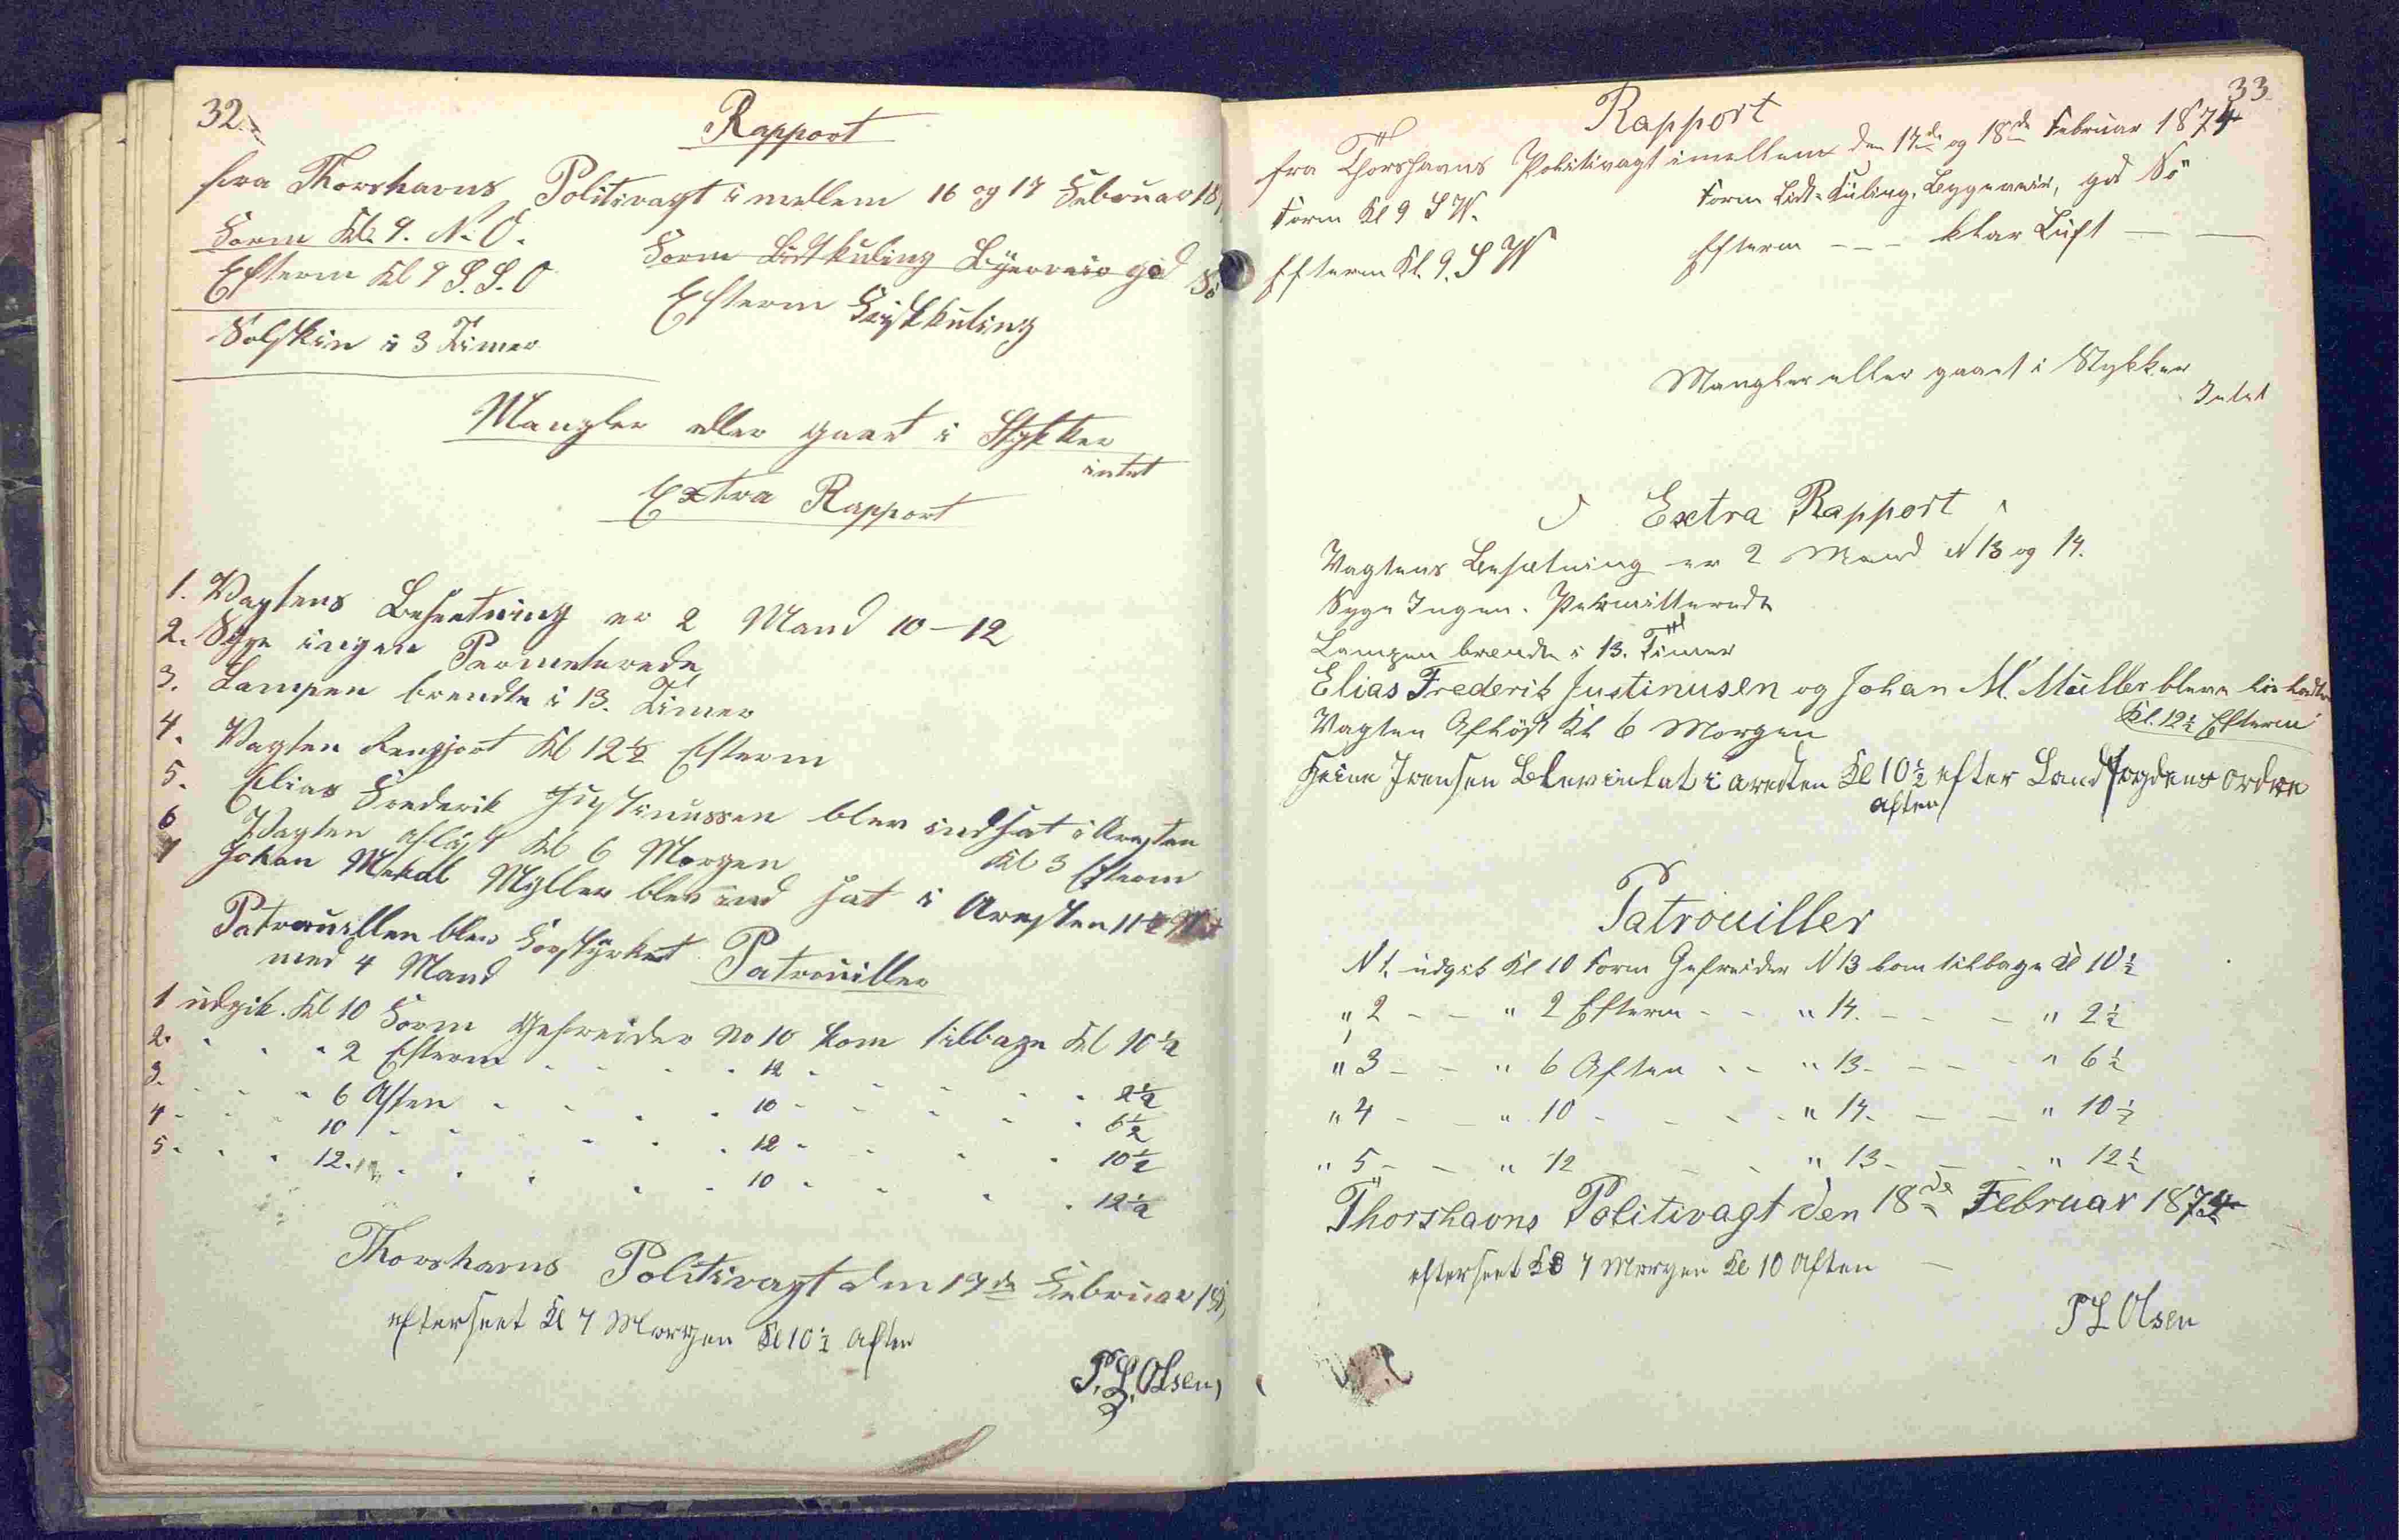 32.
Rapport
fra Thorshavns Politivagt i mellem 16 og 17 Februar 18
Form Kl. 9. N. O.
Form Lidt kuling Byeveir god Sö
Efterm Kl 9 S. S. O
Efterm Friskkuling
Solskin i 3 Timer
Mangler eller gaaet i Stykker
intet
Extra Rapport
1. Vagtens Besætning er 2 Mand 10-12
2. Syge ingen Permeterede
3. Lampen brendte i 13. Timer
4. Vagten Rengjort Kl 12½ Efterm
5. Elias Frederik Justinussen blev indsat i Aresten
Kl 3 Efterm
6 Vagten aflöst Kl 6 Morgen
7 Johan Mekal Myller blev ind sat i Aresten 11
Patrouillen blev Forstyrket
med 4 Mand
Patrouiller
1 udgik. Kl 10 Form Gefreider No 10 kom tilbage Kl 10½
2. " " " 2 Efterm " " " 12 " " " 2½
3. " " " 6 Aften " " " 10 " " " 6½
4 " " " 10 " " " " 12 " " " 10½
5. " " " 12. " " " " 10 " " " 12½
Thorshavns Politivagt den 17de Februar 18
efterseet Kl 7 Morgen Kl 10½ Aften
P. L. Olsen,
33.
Rapport
fra Thorshavns Politivagt imellem den 17de og 18de Februar 1874
Form Kl 9 S W.
Form Lidt-Kuling, Bygeveir, god Sö
Efterm Kl. 9. S W
Efterm - - - klar Luft — —
Mangler eller gaaet i Stykker
Intet
Extra Rapport
Vagtens Besætning er 2 Mand N 13 og 14.
Syge Ingen. Permitterede
Lampen brendte i 13. Timer
Elias Frederik Justinusen og Johan M. Müller bleve
Kl. 12½ Efterm
Vagten Aflöst Kl 6 Morgen
Heine Jensen Blev inlat i aresten Kl 10½ efter Landfogdens ordre
aften
Patrouiller
N 1. udgik Kl 10 Form Gefreider N 13 kom tilbage Kl 10½
" 2 - - " 2 Efterm - - " 14. - - - " 2½
" 3 - - " 6 Aften - - " 13 - - - " 6½
" 4 - - " 10 - - - " 14. - - " 10½
" 5 - - " 12 - - " 13 - - - " 12½
Thorshavns Politivagt den 18de Februar 1874
efterseet Kl 7 Morgen Kl 10 Aften
P L Olsen